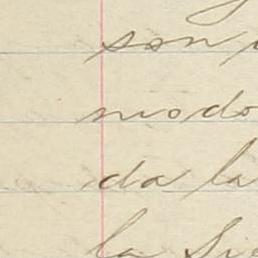 son
modo
da la
la